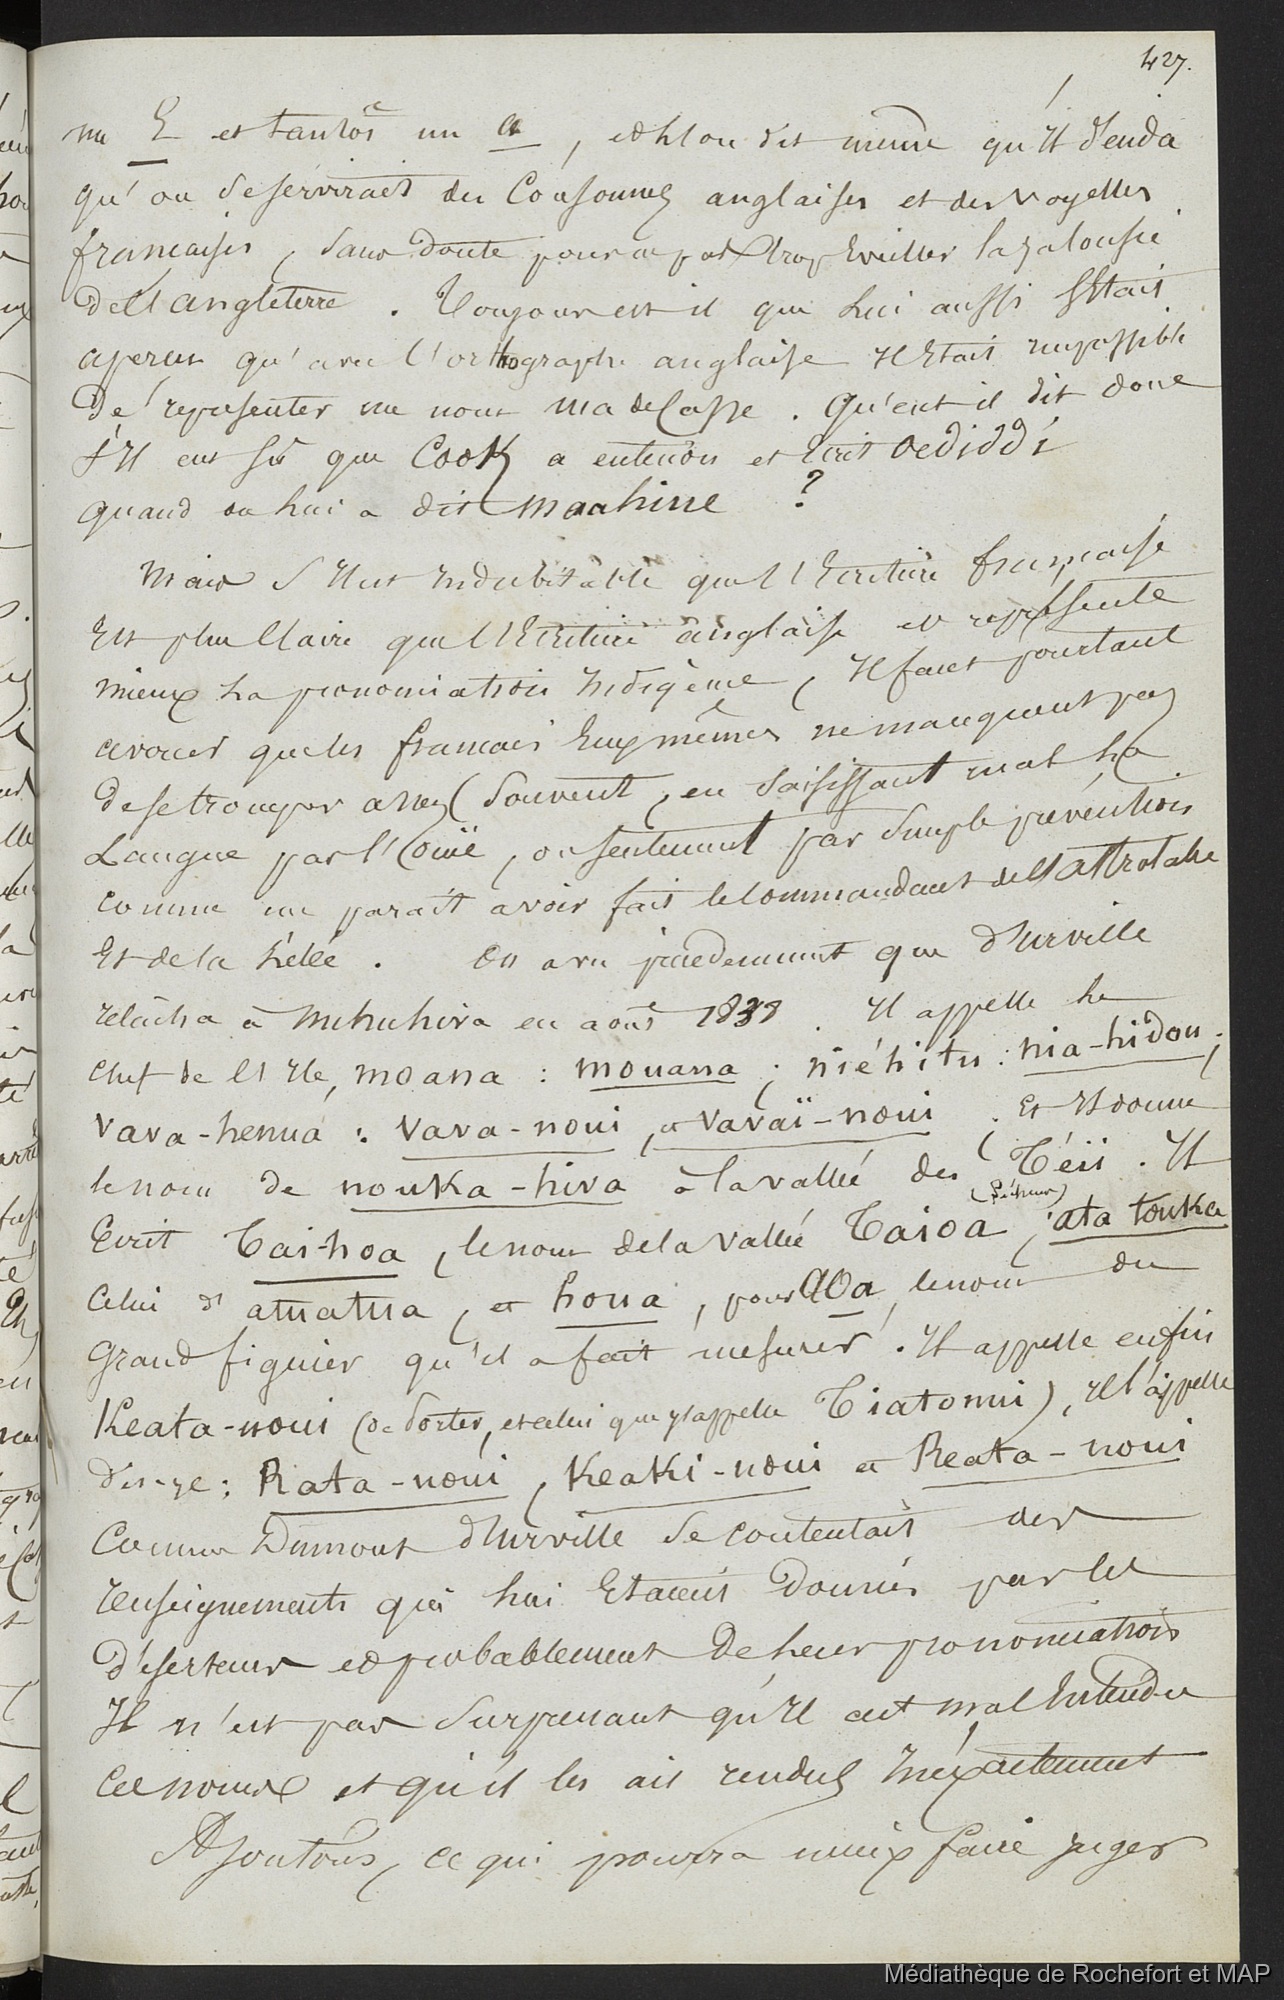 427.
un E et tantôt un a, et l'on dit même qu'il décida
qu'on se servirait des Consonnes anglaises et des Voyelles
françaises, sans doute pour ne pas trop éveiller la jalousie
de l'angleterre. Toujours est il que lui aussi s'était
aperçu qu'avec l'orthographe anglaise il était impossible
de représenter un nom madécasse. Qu'eut il dit donc
s'il eut su que Cook a entendu et écrit oediddi
quand on lui a dit maahine ?
Mais s'il est indubitable que l'Ecriture française
Est plus claire que l'Ecriture anglaise et représente
mieux la prononciation indigène, il faut pourtant
avouer que les français Eux mêmes ne manquent pas
de se tromper assez souvent, en saisissant mal la
Langue par l'ouïe, ou seulement par simple prévention
comme me paraît avoir fait le Commandant de l'astrolabe
Et de la Zélée. On a vu précédemment que d'Urville
relâcha à nukuhiva en août 1838. Il appelle le
chef de l'Ile, moana : mouana ; niéhitu : nia-hidou ;
vava-henua : vava-noui, et vavaï-noui ; Et Il donne
le nom de nouka-hiva à la vallée des Téii. Il
Ecrit Tai-hoa, le nom de la vallée Taioa, ata touka
(Pêcheur)
celui d'atuatua, et houa, pour aoa, le nom du
grand figuier qu'il a fait mesurer. Il appelle enfin
Keata-noui (de Porter, et celui que j'appelle Tiatonui), Il l'appelle
dis-je : Kata-noui, Keaki-noui et Reata-noui
Comme Dumont d'Urville se contentait des
renseignements qui lui Etaient donnés par les
déserteurs et probablement de leur prononciation
Il n'est pas surprenant qu'il ait mal Entendu
ces noms et qu'il les ait rendus inexactement
Ajoutons, ce qui pourra mieux faire juger
Médiathèque de Rochefort et MAP